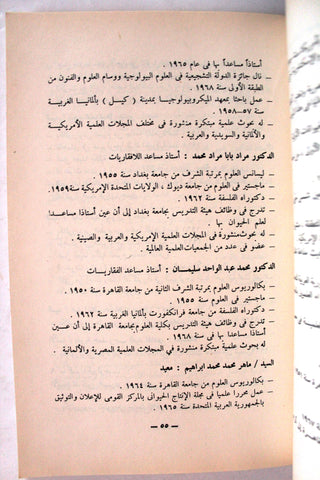 أستاذاً مساعداً بها فى عام ١٩٦٥ .
- نال جائزة الدولة التشجيعية فى العلوم البيولوجية ووسام العلوم والفنون من
الطبقة الأولى سنة ١٩٦٨ .
- عمل باحثاً بمعهد الميكروبيولوجيا بمدينة ( كييل ) بألمانيا الغربية
سنة ٥٧-١٩٥٨ .
- له بحوث علمية مبتكرة منشورة فى مختلف المجلات العلمية الأمريكية
والألمانية والسويدية والعربية .
الدكتور مراد بابا مراد محمد : أستاذ مساعد اللافقاريات
- ليسانس العلوم بمرتبة الشرف من جامعة بغداد سنة ١٩٥٥ .
- ماجستير من جامعة ديوك ، الولايات المتحدة الإمريكية سنة ١٩٥٩.
- دكتوراه الفلسفة سنة ١٩٦٢ .
- تدرج فى وظائف هيئة التدريس بجامعة بغداد إلى أن عين أستاذا مساعدا
لعلم الحيوان بها .
- له بحوث منشورة فى المجلات العلمية الإمريكية والعربية والصينية .
- عضو فى عدد من الجمعيات العلمية العالمية .
الدكتور محمد عبد الواحد سليمان : أستاذ مساعد الفقاريات
- بكالوريوس العلوم بمرتبة الشرف الثانية من جامعة القاهرة سنة ١٩٥٠ .
- ماجستير فى العلوم سنة ١٩٥٥ .
- دكتوراه الفلسفة من جامعة فرانكفورت بألمانيا الغربية سنة ١٩٦٢ .
- تدرج فى وظائف هيئة التدريس بكلية العلوم بجامعة القاهرة إلى أن عين
أستاذاً مساعداً بها فى سنة ١٩٦٨ .
- له بحوث علمية مبتكرة منشورة فى المجلات العلمية المصرية والألمانية .
السيد / ماهر محمد محمد ابراهيم : معيد
- بكالوريوس العلوم من جامعة القاهرة سنة ١٩٦٤ .
- عمل محررا علميا فى مجلة الإنتاج الحيوانى بالمركز القومى للإعلان والتوثيق
بالجمهورية العربية المتحدة سنة ١٩٦٥ .
— ٥٥ —